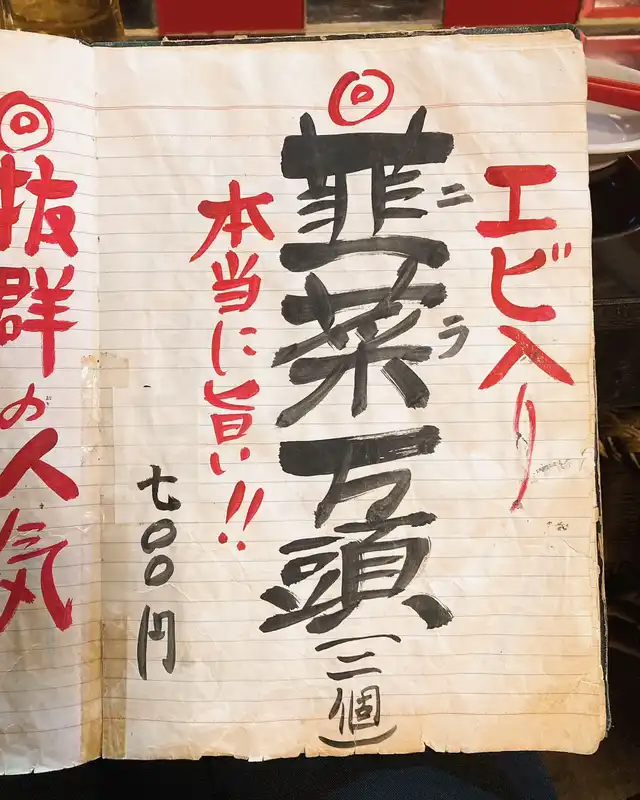 エビ入り
韮菜万頭(三個)
ニラ
本当に旨い!!
七〇〇円
抜群の人気